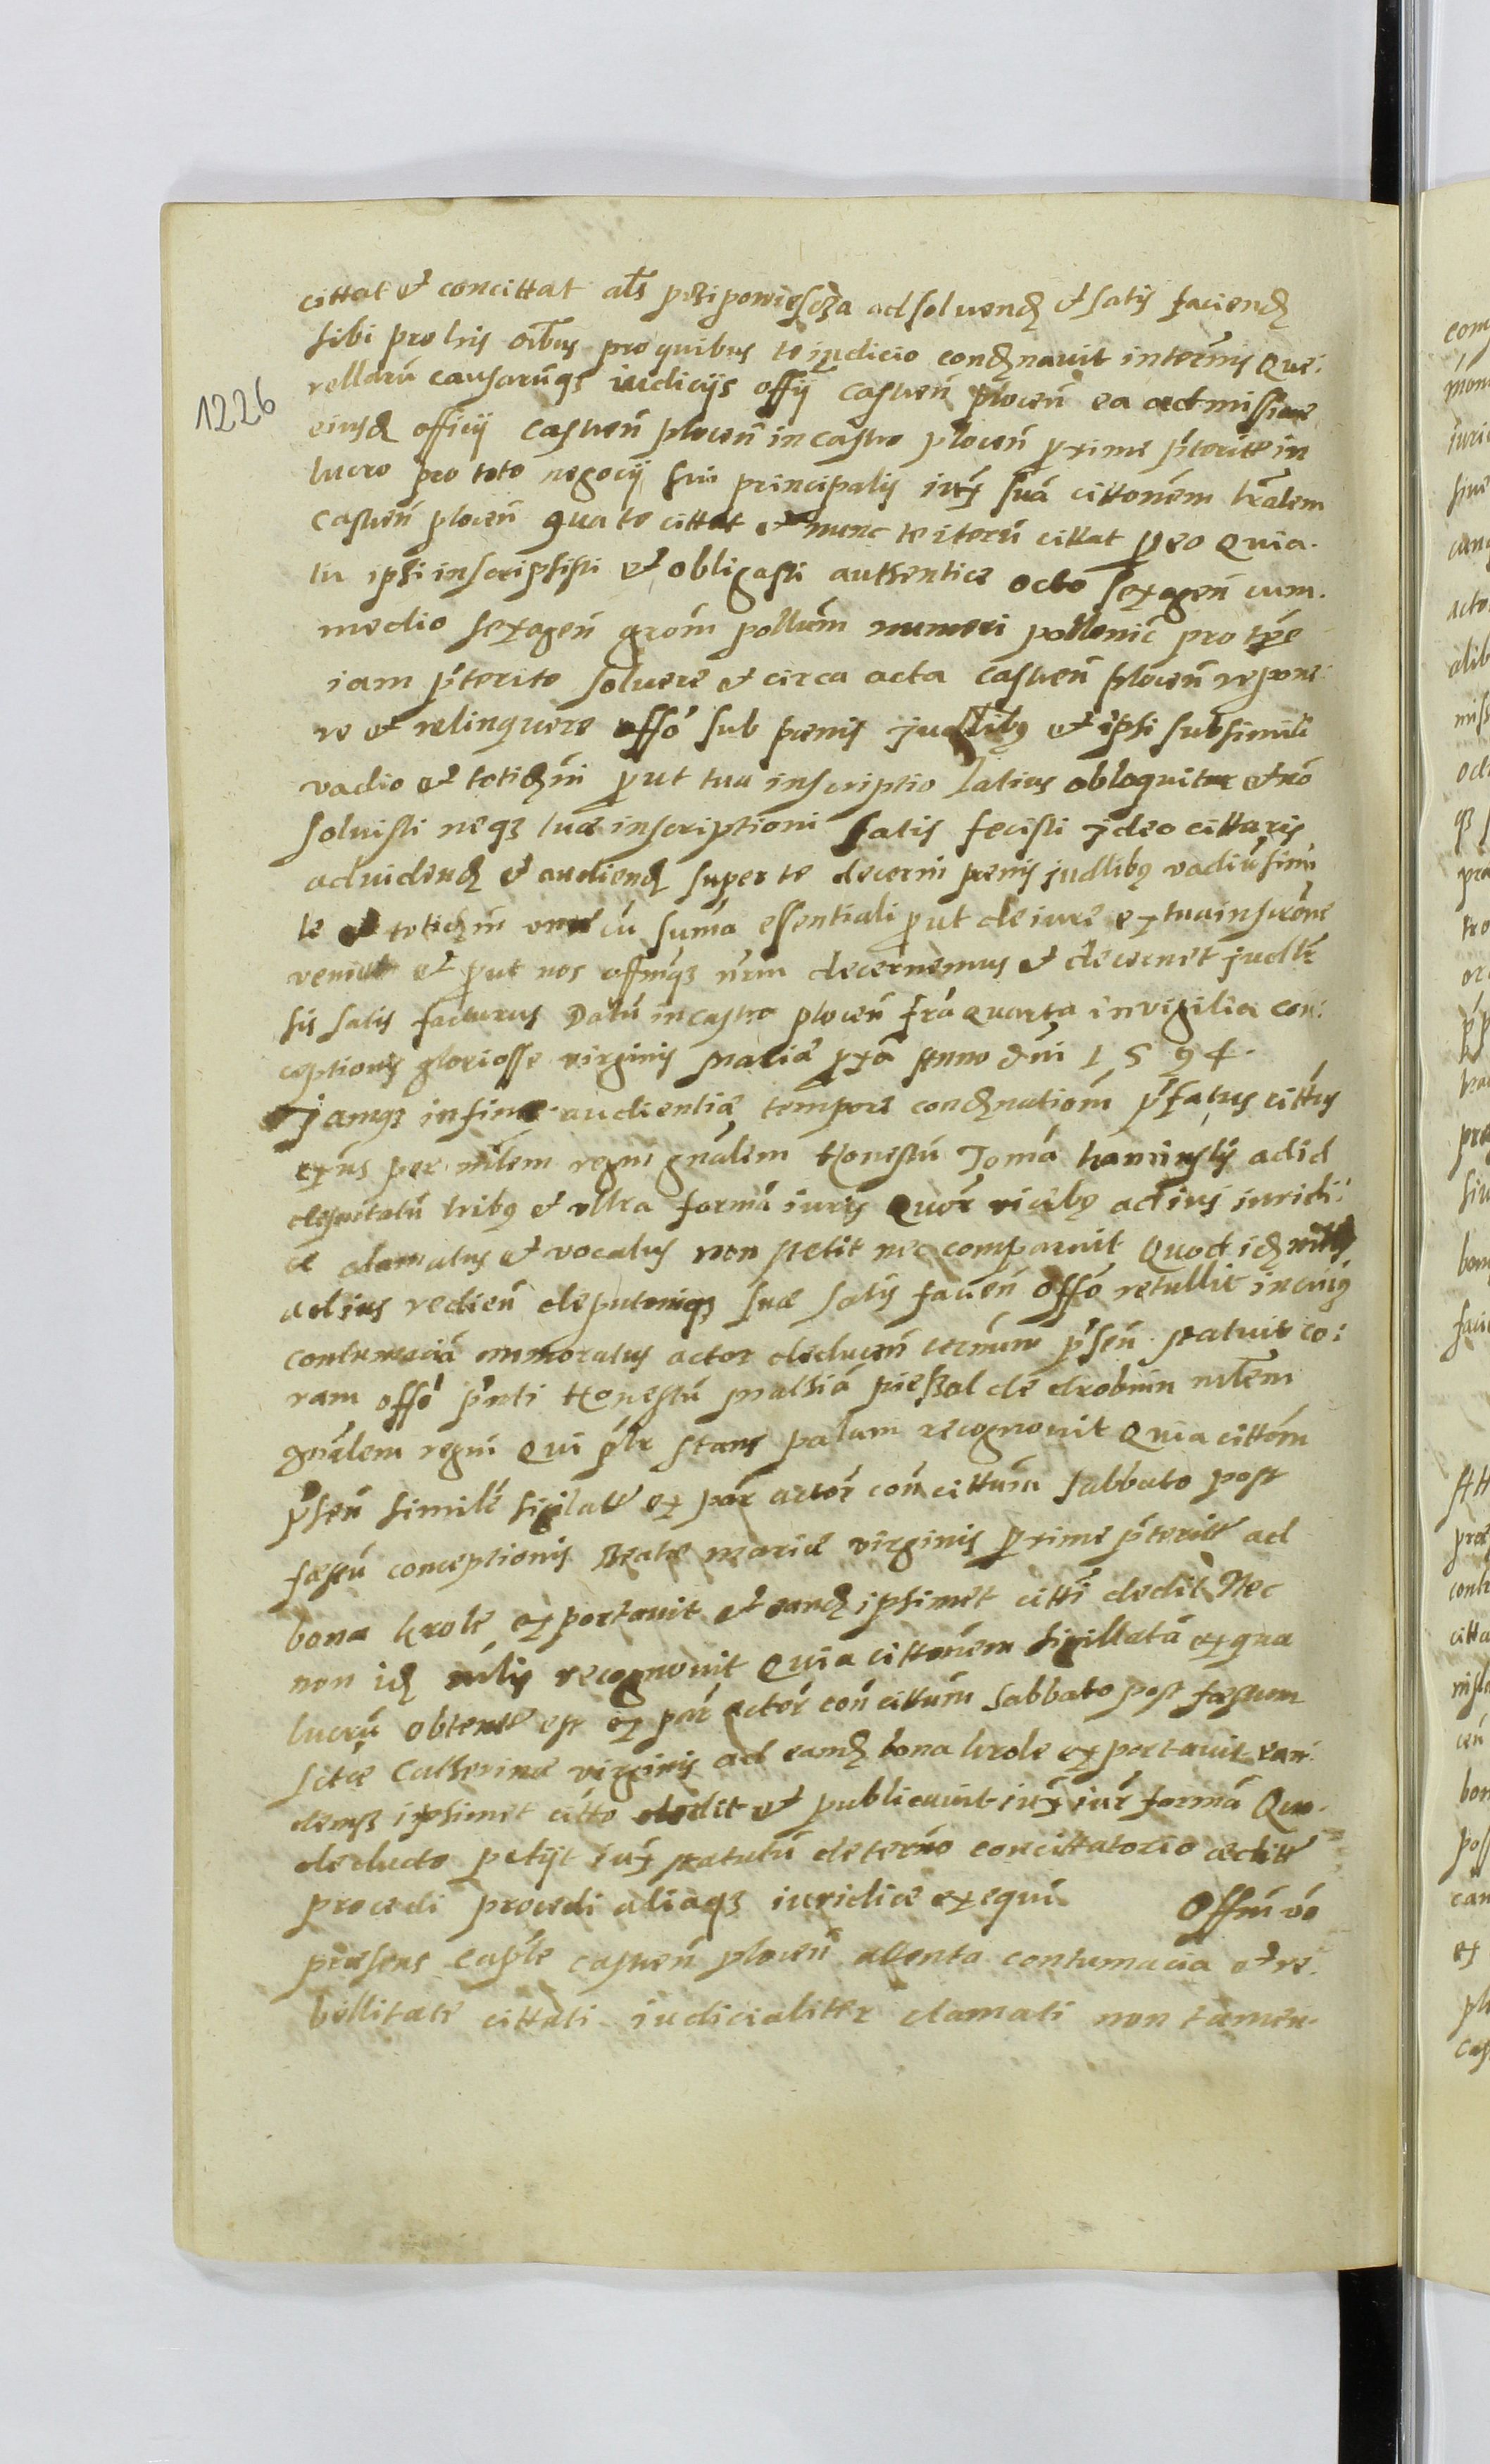 cittat et concittat al̃s przipowiescza ad soluend et satis faciend
sibi pro his oĩbus pro quibus te iudicio condnauit in termis Que:
rellarũ causarũqз iudicijs offij Castren̄ plocen̄ ea admissione
eiusd officij Castren̄ plocen̄ in castro plocen̄ pxime p̃teritt in
lucro pro toto negocij sui principalis iux suã cittonem lralem
Castren̄ plocen̄ qua te cittat et nunc te iterũ cittat peo Quia
tu ipsi inscripsisti et obligasti authentice octo sexagen̄ cum
medio sexagen̄ grom̃ pollum̃ numeri pollonic̃ pro tpe
iam p̃terito soluere et circa acta Castren̄ plocen̄ repone:
re et relinquere offõ sub pœnis judlibꝫ et ipsi sub simili
vadio et totidm̃ put tua inscriptio latius obloquitur et nõ
soluisti neqз tuæ inscriptioni satis fecisti jdeo cittaris
ad uidend et audiend super te decerni pœnis judlibꝫ vadiũ simi
le et totidm̃ una cũ suma essentiali put de iure ex tua inscrone
veniat et put nos offmqз nrm decernemus et decernet judlr
sis satis facturus Datũ in castro plocen̄ fra quarta in vigilia con:
ceptionis gloriosse virginis Mariæ pxa Anno dni 1594.
Jamqз in fine audientiæ tempore condnationm̃ p̃fatus cittus
exns per mlem regni gnalem Honestũ Tomã kaminskij ad id
deputatũ tribꝫ et ultra formã iuris Quor̃ vicibꝫ ad ius iuridi:
ce clamatus et vocatus non stetit nec comparuit Quod id mlis
ad ius redien̄ deputoniqз suæ satis facien̄ offo retullit in cuiꝫ
contumaciã immoratus actor deducen̄ termum p̃sen̄ statuit co:
ram offõ p̃nti Honestũ Mathiã pieszal de drobnin mlem
gnalem regni Qui p̃lr stans palam recognouit Quia cittom̃
p̃sen̄ similr sigilatt ex par̃ actor̃ con̄ cittum̃ sabbato post
fæstũ conceptionis Beatæ mariæ virginis pxime p̃teritt ad
bona krole exportauit et eand ipsimet citti dedit Nec
non id mlis recognouit Quia cittonem sigillatã ex qua
lucrũ obtentt est ex par̃ actor̃ con̄ cittum̃ sabbato post fæstum
sctæ Catherinæ virginis ad eamd bona krole exportauit ean:
demqз ipsimet citto dedit et publicauit iux iur̃ formã Quo
deducto petijt iux statutũ de termo concittatorio æditt
procedi procedi aliaqз iuridice exequi Offm vo
præsens Caple Castren̄ plocen̄ attenta contumacia et re:
bellitate cittati iudicialitter clamati non tamen
1226